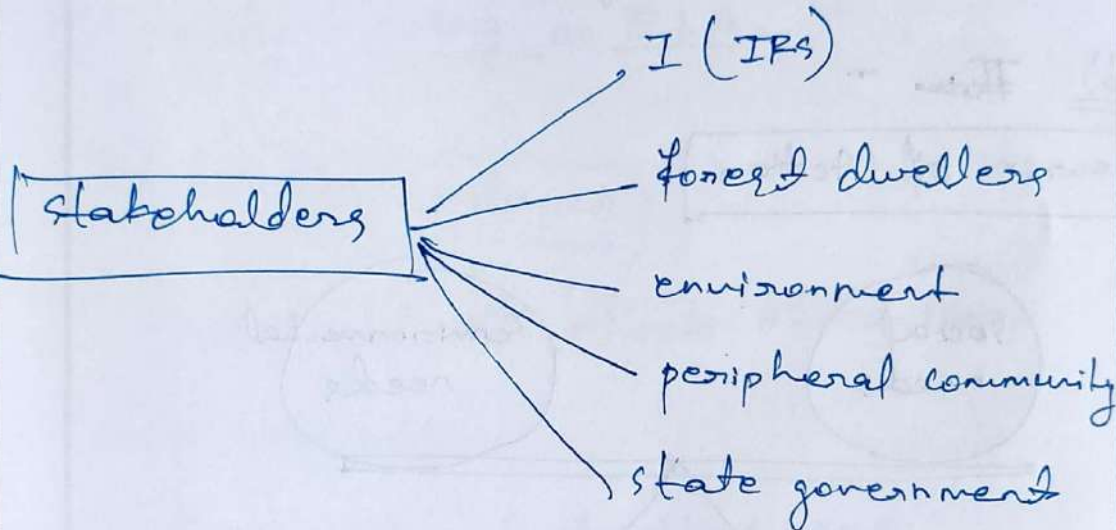 I (IRS)
stakeholders
forest dwellers
environment
peripheral community
state government